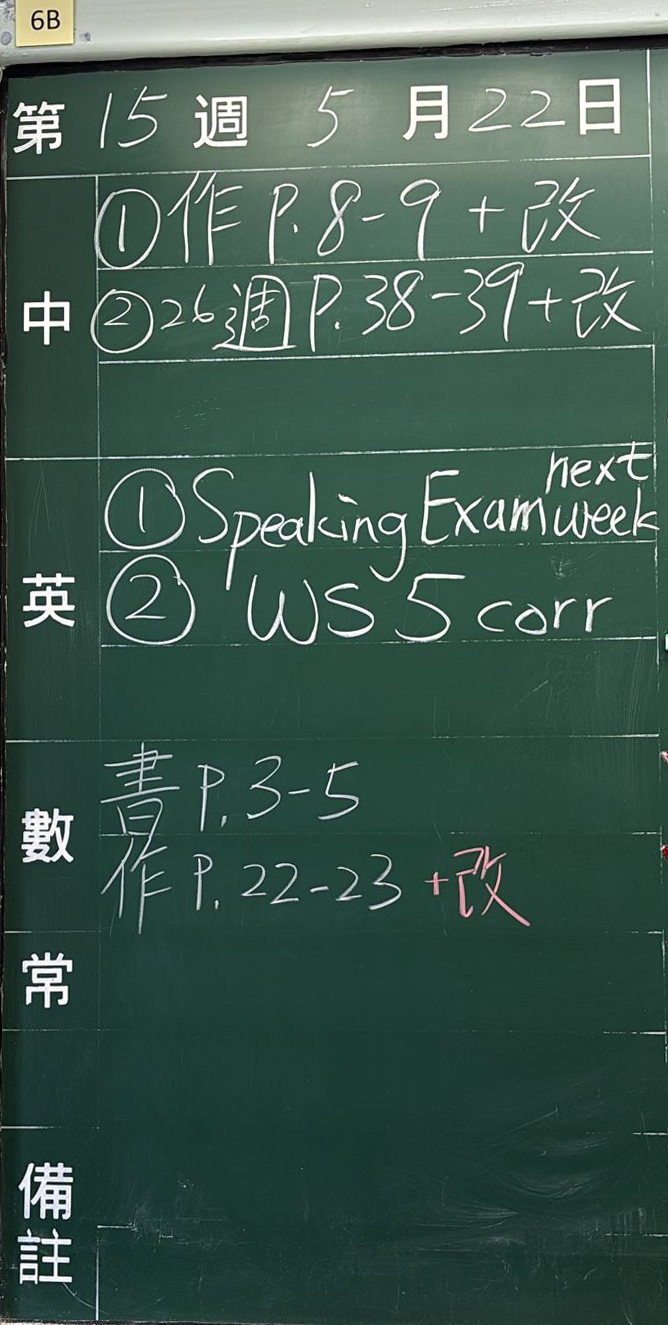 6B
第 15 週 5 月 22 日
中
①作 P. 8-9 + 改
②26週 P. 38-39 + 改
英
①Speaking Exam next week
② WS 5 corr
數
書 P. 3-5
作 P. 22-23 + 改
常
備註